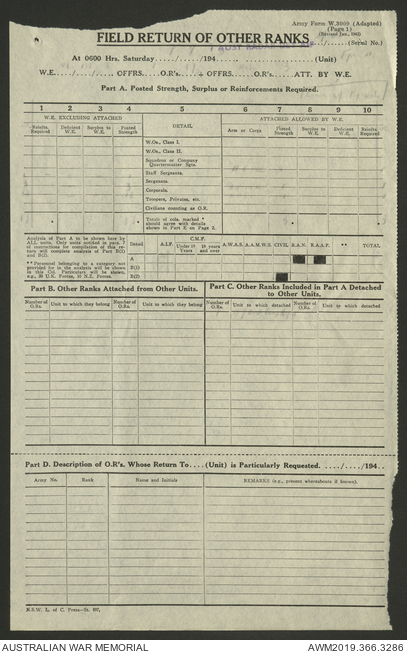 Army Form W.3009 (Adapted)
(Page 1)
(Revised Jan., 1943)
FIELD RETURN OF OTHER RANKS ....../...... (Serial No.)
At 0600 Hrs. Saturday....../....../194...... ...............(Unit)
W.E....../....../...... OFFRS. ......O.R's. ......+ OFFRS. ......O.R's. ......ATT. BY W.E.
Part A. Posted Strength, Surplus or Reinforcements Required.
1 2 3 4 5 6 7 8 9 10
W.E. EXCLUDING ATTACHED DETAIL ATTACHED ALLOWED BY W.E.
Reinfts. Required Deficient W.E. Surplus to W.E. Posted Strength Arm or Corps Posted Strength Surplus to W.E. Deficient W.E. Reinfts. Required
W.Os., Class I.
W.Os., Class II.
Squadron or Company
Quartermaster Sgts.
Staff Sergeants.
Sergeants
Corporals.
Troopers, Privates, etc.
Civilians counting as O.R.
* Totals of cols. marked * *
should agree with details
shown in Part E, on Page 2.
Analysis of Part A to be shown here by
ALL units. Only units notified in part. 7
of instructions for compilation of this re-
turn will complete analysis of Part B(1)
and B(2).
** Personnel belonging to a category not
provided for in the analysis will be shown
in this Col. Particulars will be shown,
e.g., 20 U.K. Forces, 10 N.Z. Forces.
Detail A.I.F. C.M.F. Under 19 Years 19 years and over A.W.A.S. A.A.M.W.S. CIVIL R.A.N. R.A.A.F. ** TOTAL
A
B(1)
B(2)
Part B. Other Ranks Attached from Other Units.
Part C. Other Ranks Included in Part A Detached
to Other Units.
Number of O.Rs. Unit to which they belong Number of O.Rs. Unit to which they belong Number of O.Rs. Unit to which detached Number of O.Rs. Unit to which detached
Part D. Description of O.R's. Whose Return To.....(Unit) is Particularly Requested. ..../..../194..
Army No. Rank Name and Initials REMARKS (e.g., present whereabouts if known).
N.S.W. L. of C. Press—St. 897.
AUSTRALIAN WAR MEMORIAL AWM2019.366.3286